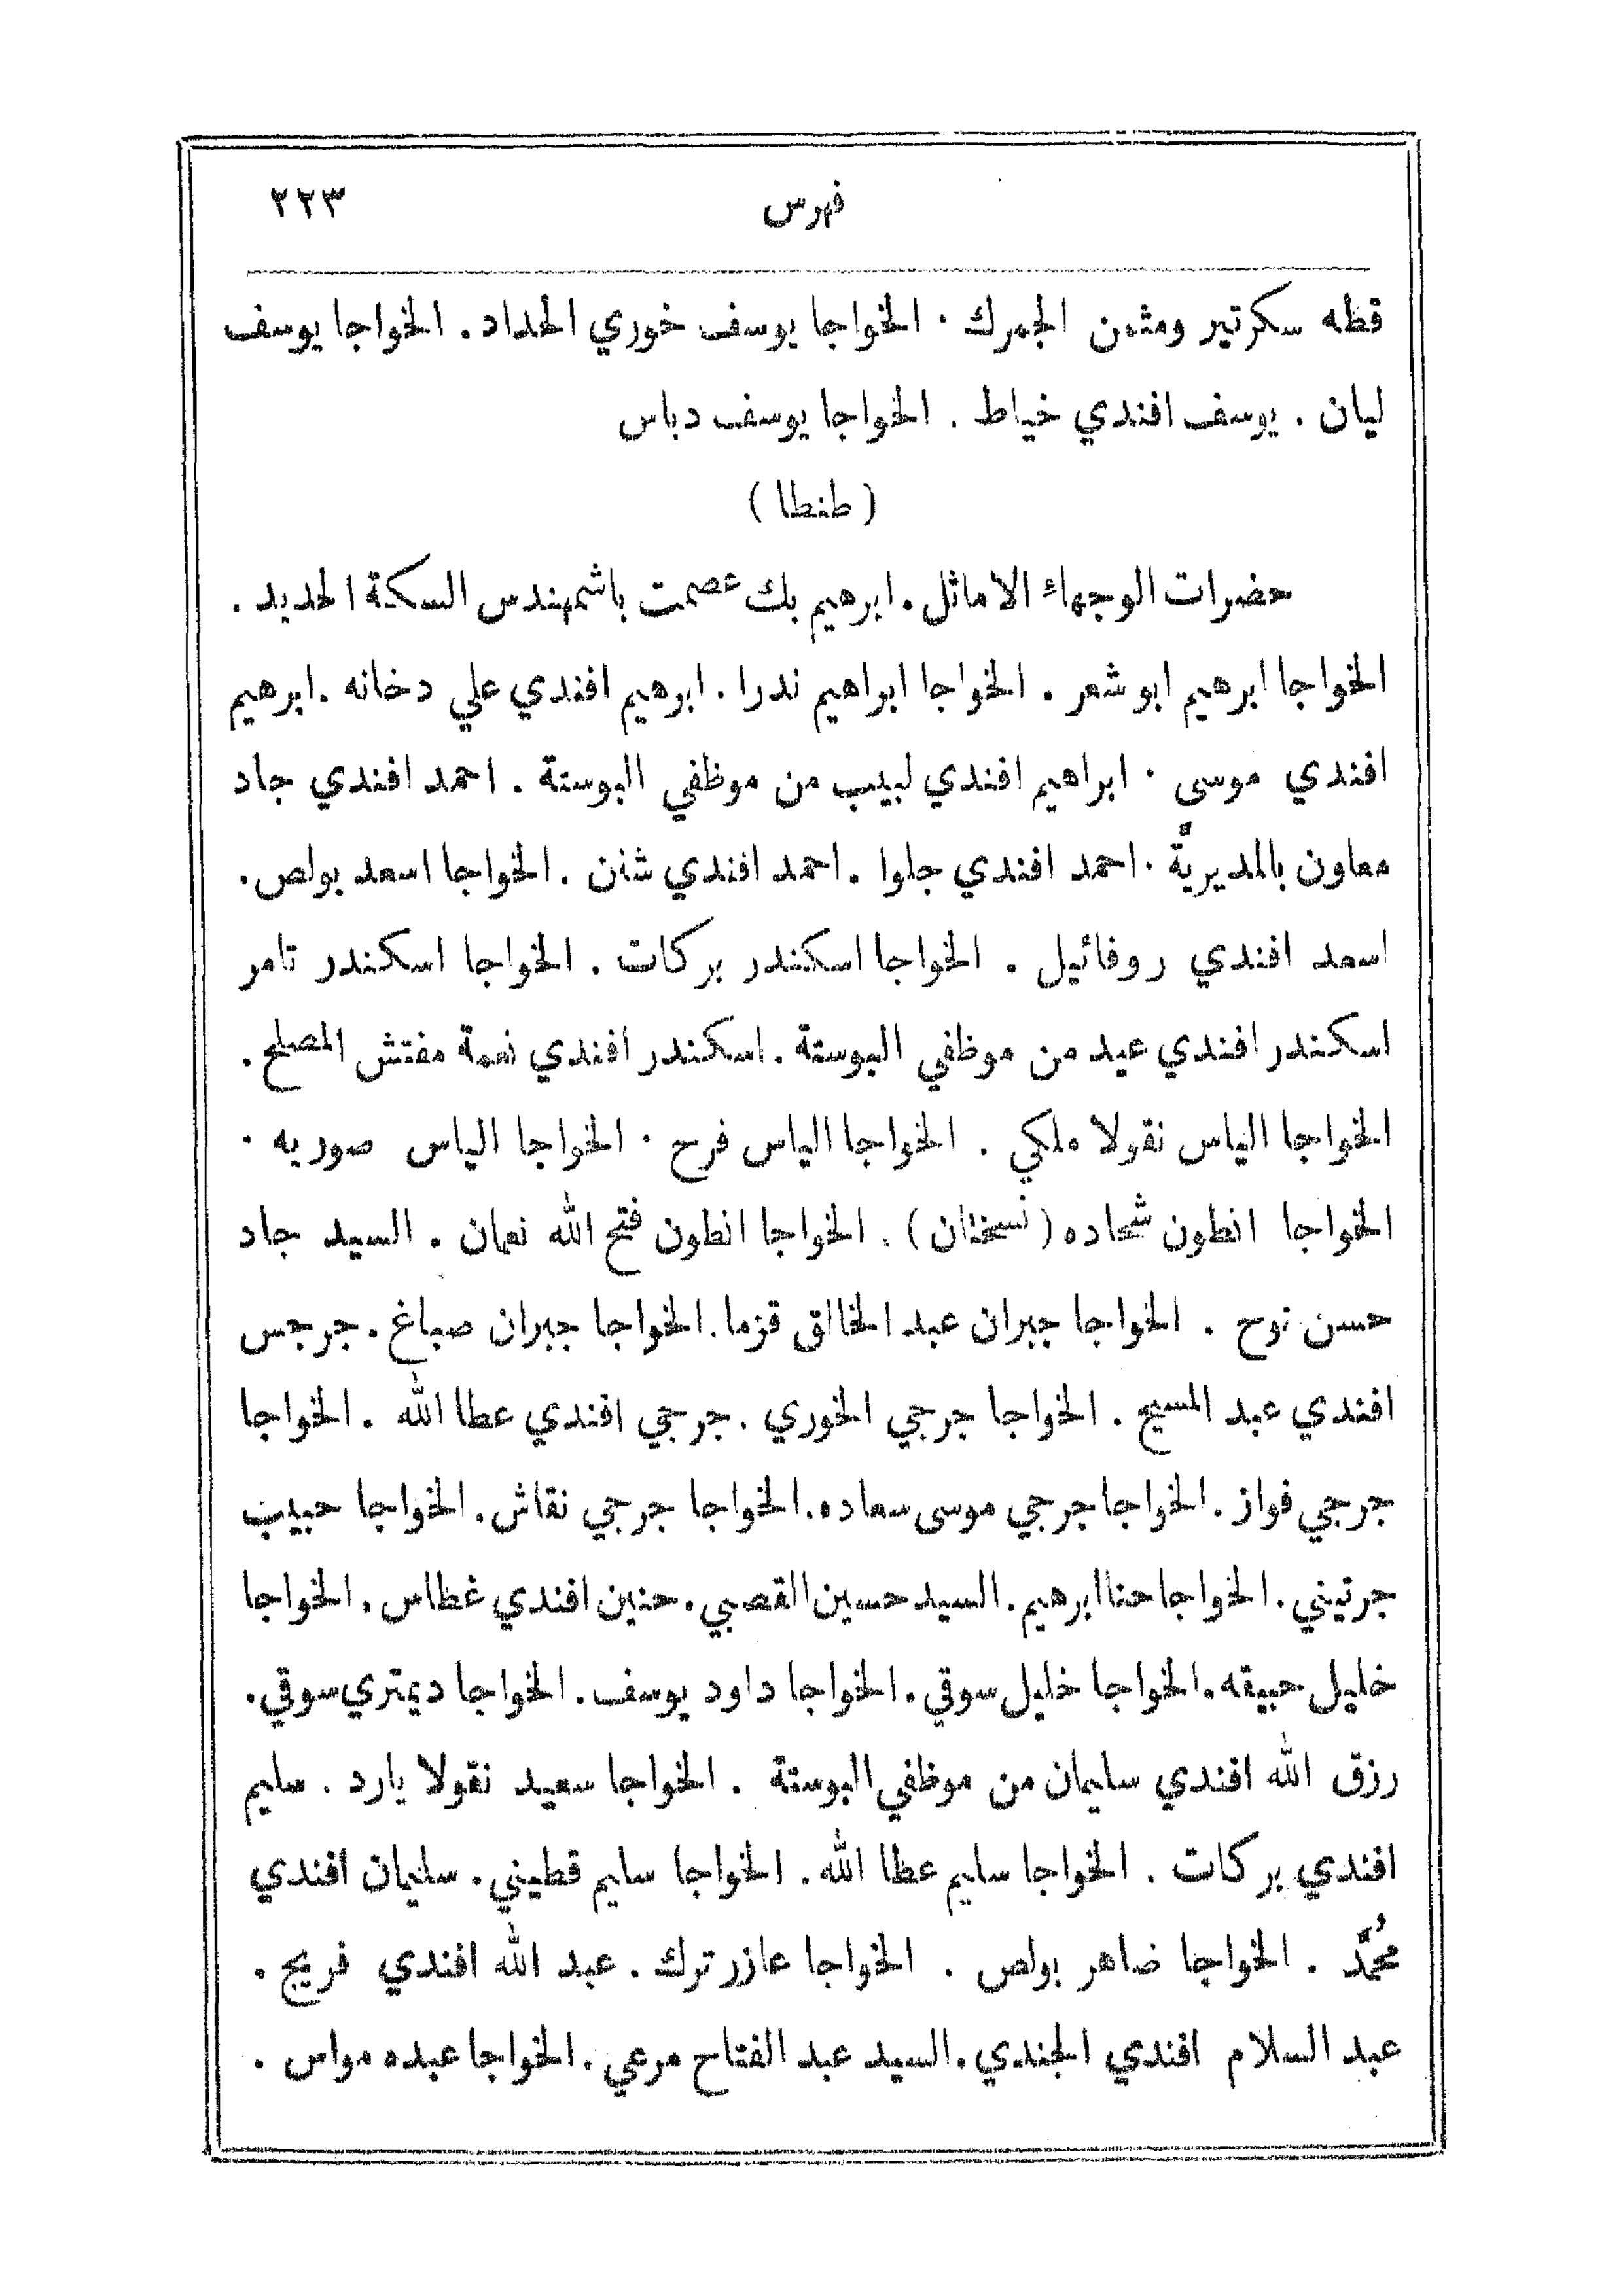 فهرس ٢٢٣
قطه سكرتير ومثمن الجمرك . الخواجا يوسف خوري الحداد . الخواجا يوسف
ليان . يوسف افندي خياط . الخواجا يوسف دباس
( طنطا )
حضرات الوجهاء الاماثل . ابرهيم بك عصمت باشمهندس السكة الحديد .
الخواجا ابرهيم ابو شعر . الخواجا ابراهيم ندرا . ابرهيم افندي علي دخانه . ابرهيم
افندي موسى . ابراهيم افندي لبيب من موظفي البوستة . احمد افندي جاد
معاون بالمديريَّة . احمد افندي جلوا . احمد افندي شنن . الخواجا اسعد بولص .
اسعد افندي روفائيل . الخواجا اسكندر بركات . الخواجا اسكندر تامر
اسكندر افندي عيد من موظفي البوستة . اسكندر افندي نعمة مفتش المصلح .
الخواجا الياس نقولا ملكي . الخواجا الياس فرح . الخواجا الياس صوريه .
الخواجا انطون شحاده ( نسختان ) . الخواجا انطون فتح الله نعمان . السيد جاد
حسن نوح . الخواجا جبران عبد الخالق قزما . الخواجا جبران صباغ . جرجس
افندي عبد المسيح . الخواجا جرجي الخوري . جرجي افندي عطا الله . الخواجا
جرجي فواز . الخواجا جرجي موسى سعاده . الخواجا جرجي نقاش . الخواجا حبيب
جرتيني . الخواجا حنا ابرهيم . السيد حسين القصبي . حنين افندي غطاس . الخواجا
خليل حبيقه . الخواجا خليل سوقي . الخواجا داود يوسف . الخواجا ديمتري سوقي .
رزق الله افندي سليمان من موظفي البوستة . الخواجا سعيد نقولا يارد . سليم
افندي بركات . الخواجا سليم عطا الله . الخواجا سليم قطيني . سليمان افندي
مُحمَّد . الخواجا ضاهر بولص . الخواجا عازر ترك . عبد الله افندي فريج .
عبد السلام افندي الجندي . السيد عبد الفتاح مرعي . الخواجا عبده مواس .